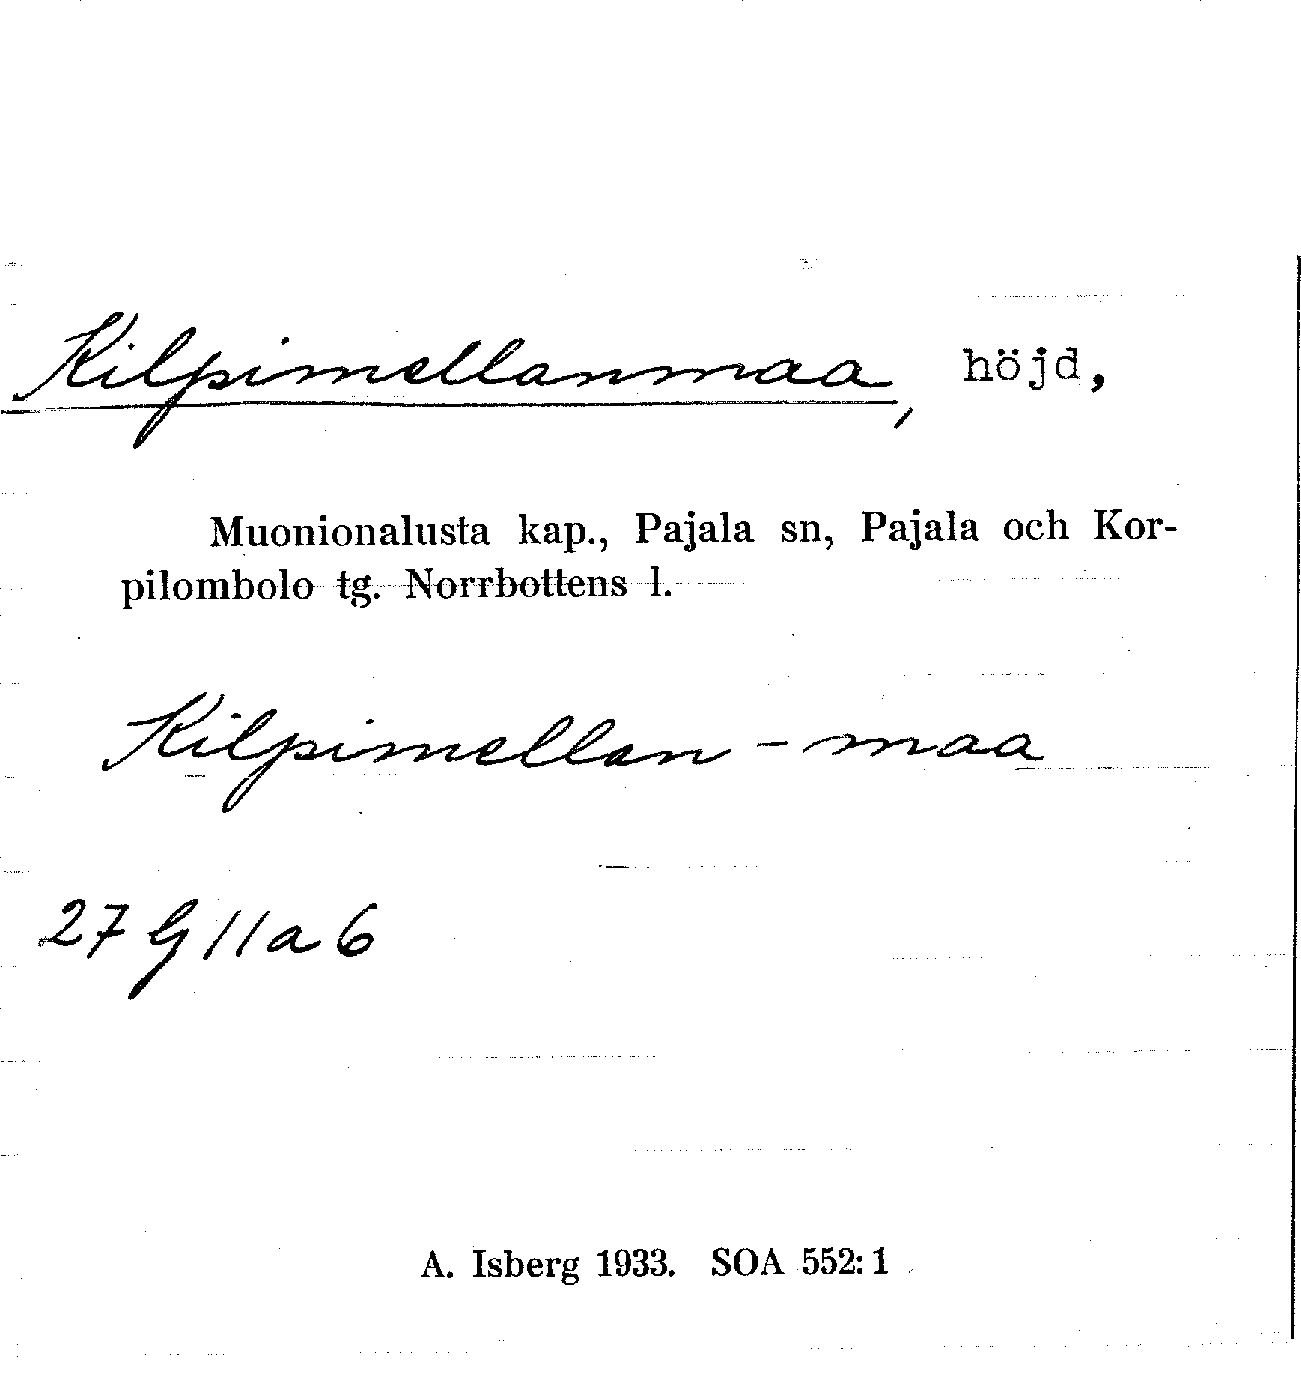 Kilpimellanmaa, höjd,
Muonionalusta kap., Pajala sn, Pajala och Kor-
pilombolo tg. Norrbottens l.
Kilpimellan - maa
27 G 11 a 6
A. Isberg 1933. SOA 552:1